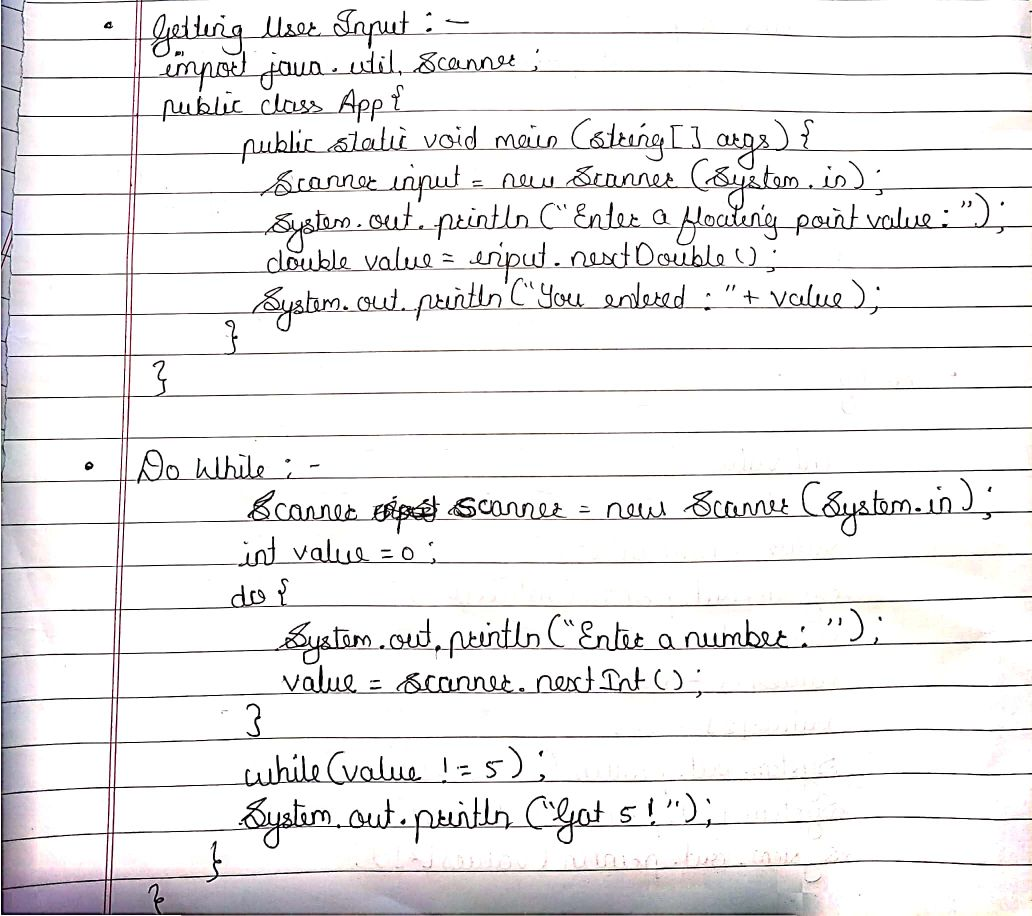 • Getting User Input : -
import java.util.Scanner;
public class App {
public static void main (string[] args) {
Scanner input = new Scanner (System.in);
System.out.println ("Enter a floating point value: ");
double value = input.nextDouble();
System.out.println ("You entered : " + value);
}
}
• Do While : -
Scanner scanner = new Scanner (System.in);
int value = 0;
do {
System.out.println ("Enter a number: ");
value = scanner.nextInt();
}
while (value != 5);
System.out.println ("Got 5!");
}
}